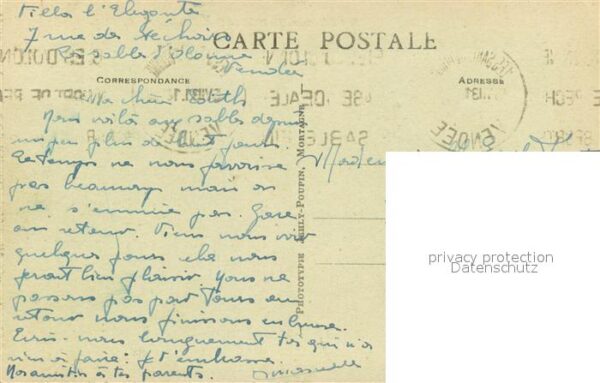 Villa l'Elegante
7 rue des
les sables d'olonne
Vendée
CARTE POSTALE
CORRESPONDANCE
ADRESSE
Ma chère Edith
Nous voilà aux sables depuis
un peu plus de huit jours.
Le temps ne nous favorise
pas beaucoup mais on
ne s'ennuie pas.
au retour. Viens nous voir
quelques jours cela nous
ferait bien plaisir. Nous ne
passons pas par Tours au
retour nous finissons en
Ecris-nous longuement toi qui n'as
rien à faire: Je t'embrasse.
Nos amitiés à tes parents.
PHOTOTYPIE POUPIN, MORTAGNE
VENDÉE
privacy protection
Datenschutz